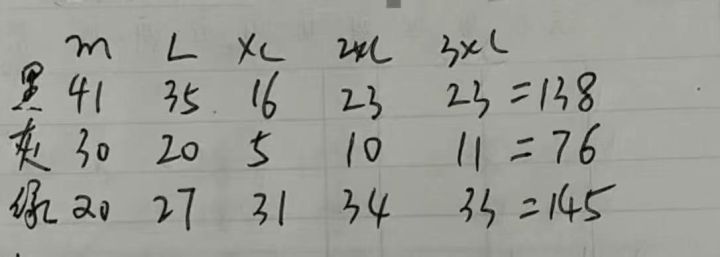 m L XL 2XL 3XL
黑 41 35 16 23 23 =138
灰 30 20 5 10 11 =76
绿 20 27 31 34 33 =145